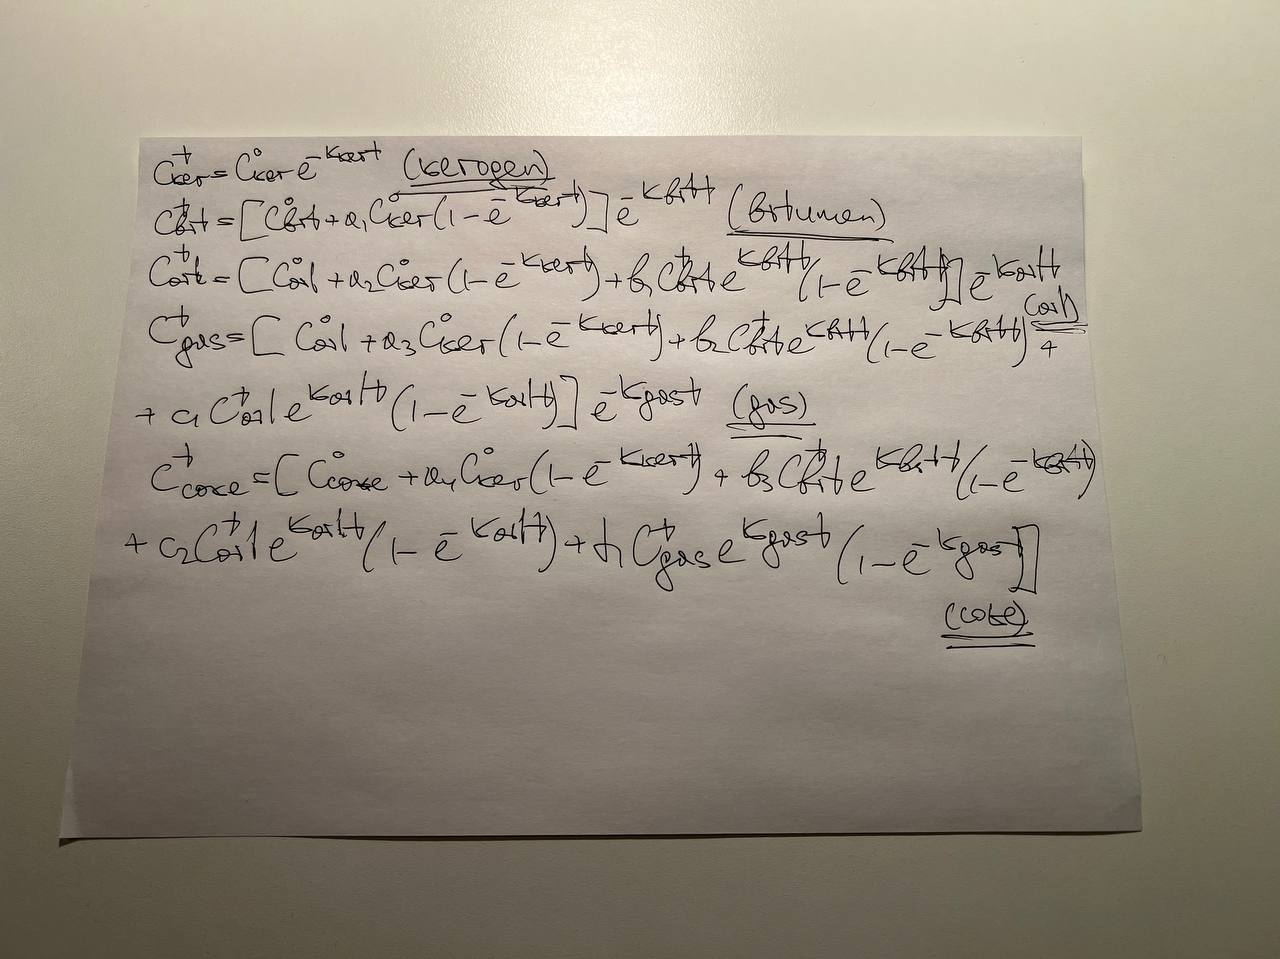 C_ker^t = C_ker^o e^-Kker t (kerogen)
C_bit^t = [C_bit^o + a₁C_ker^o(1 - e^-Kker t)] e^-Kbit t (bitumen)
C_oil^t = [C_oil^o + a₂C_ker^o(1 - e^-Kker t) + b₁C_bit^t e^Kbit t(1 - e^-Kbit t)] e^-Koil t (oil)
C_gas^t = [C_oil^o + a₃C_ker^o(1 - e^-Kker t) + b₂C_bit^t e^Kbit t(1 - e^-Kbit t) +
+ c₁C_oil^t e^Koil t(1 - e^-Koil t)] e^-Kgas t (gas)
C_coke^t = [C_coke^o + a₄C_ker^o(1 - e^-Kker t) + b₃C_bit^t e^Kbit t(1 - e^-Kbit t)
+ c₂C_oil^t e^Koil t(1 - e^-Koil t) + d₁C_gas^t e^Kgas t(1 - e^-Kgas t)]
(coke)